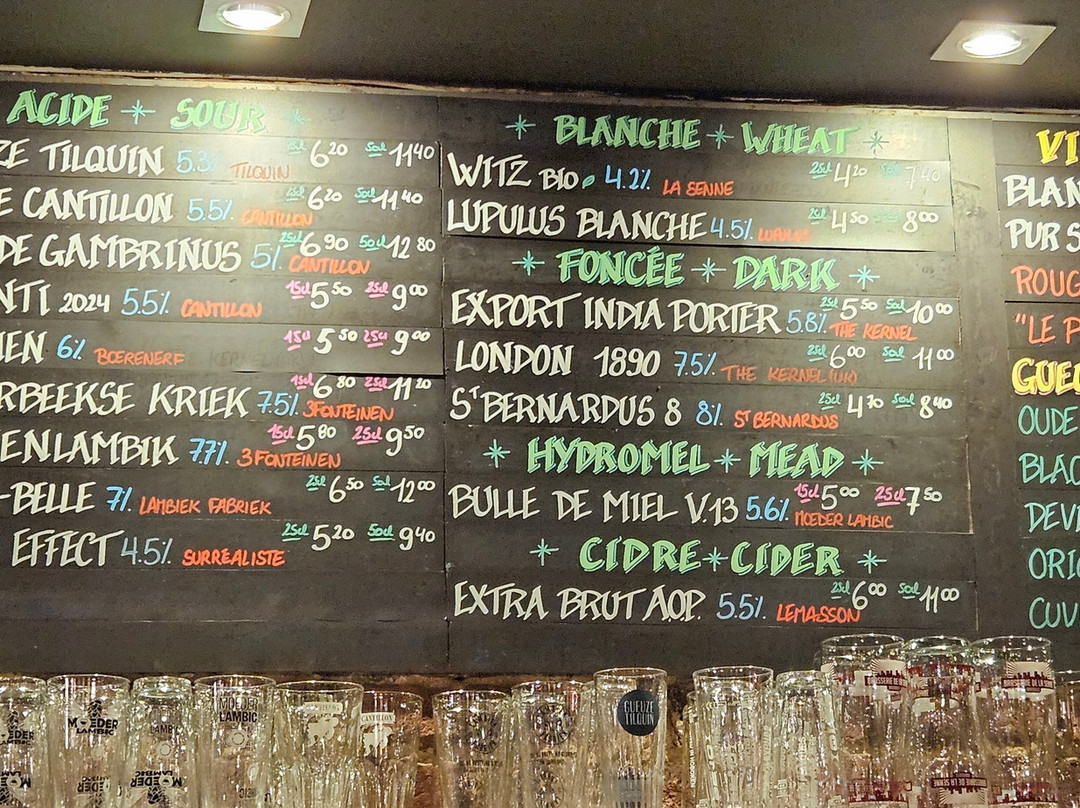 ACIDE * SOUR *
ZE TILQUIN 5.3% TILQUIN 15cl 6²⁰ 50cl 11⁴⁰
E CANTILLON 5.5% CANTILLON 25cl 6²⁰ 50cl 11⁴⁰
DE GAMBRINUS 5% CANTILLON 25cl 6⁹⁰ 50cl 12⁸⁰
NTI 2024 5.5% CANTILLON 15cl 5⁵⁰ 25cl 9⁰⁰
IEN 6% BOERENERF 15cl 5⁵⁰ 25cl 9⁰⁰
RBEEKSE KRIEK 7.5% 3FONTEINEN 15cl 6⁸⁰ 25cl 11²⁰
ENLAMBIK 7.7% 3FONTEINEN 15cl 5⁸⁰ 25cl 9⁵⁰
-BELLE 7% LAMBIEK FABRIEK 25cl 6⁵⁰ 50cl 12⁰⁰
EFFECT 4.5% SURRÉALISTE 25cl 5²⁰ 50cl 9⁴⁰
* BLANCHE * WHEAT *
WITZ BIO 4.2% LA SENNE 25cl 4²⁰ 50cl 7⁴⁰
LUPULUS BLANCHE 4.5% LUPULUS 25cl 4⁵⁰ 8⁰⁰
* FONCÉE * DARK *
EXPORT INDIA PORTER 5.8% THE KERNEL 25cl 5⁵⁰ 50cl 10⁰⁰
LONDON 1890 7.5% THE KERNEL (UK) 25cl 6⁰⁰ 50cl 11⁰⁰
ST BERNARDUS 8 8% ST BERNARDUS 25cl 4⁷⁰ 50cl 8⁴⁰
* HYDROMEL * MEAD *
BULLE DE MIEL V.13 5.6% MOEDER LAMBIC 15cl 5⁰⁰ 25cl 7⁵⁰
* CIDRE * CIDER *
EXTRA BRUT A.O.P. 5.5% LEMASSON 25cl 6⁰⁰ 50cl 11⁰⁰
VI
BLAN
PUR S
ROUG
"LE P
GUEU
OUDE
BLAC
DEVI
ORIG
CUV
MOEDER LAMBIC
MOEDER LAMBIC
CANTILLON
GUEUZE TILQUIN
MOEDER LAMBIC